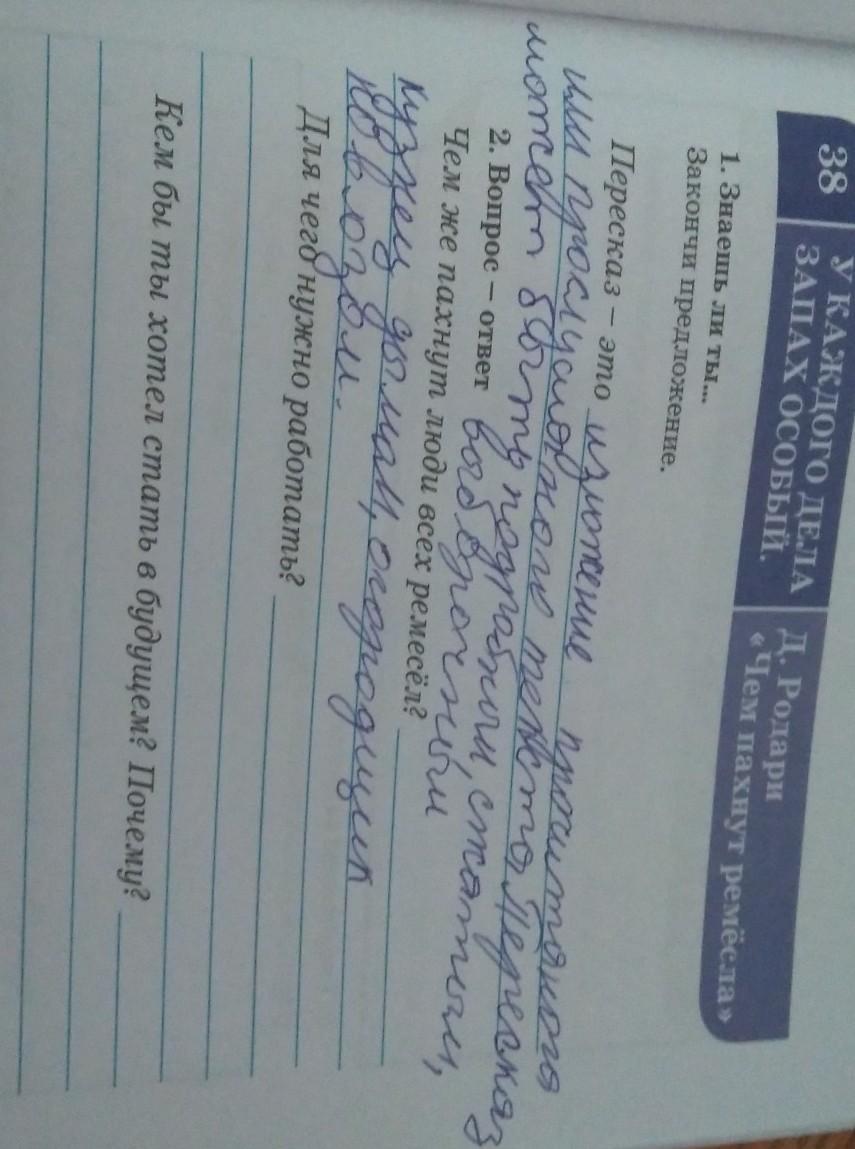 38
У КАЖДОГО ДЕЛА
ЗАПАХ ОСОБЫЙ.
Д. Родари
«Чем пахнут ремёсла»
1. Знаешь ли ты...
Закончи предложение.
Пересказ – это изложение прочитанного
или прослушаного текста. Пересказ
может быть подробным, сжатым,
2. Вопрос – ответ выборочным
Чем же пахнут люди всех ремесёл?
кузнец дымом, огородник
навозом.
Для чего нужно работать?
Кем бы ты хотел стать в будущем? Почему?